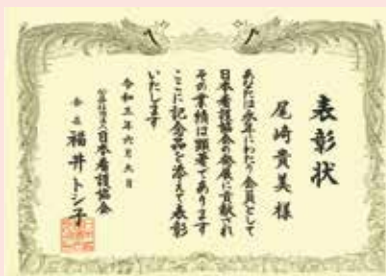 表彰状
尾崎貴美 様
あなたは永年にわたり会員として
日本看護協会の発展に貢献され
その業績は顕著であります
ここに記念品を添えて表彰
いたします
令和三年六月九日
公益社団法人日本看護協会
会長 福井トシ子